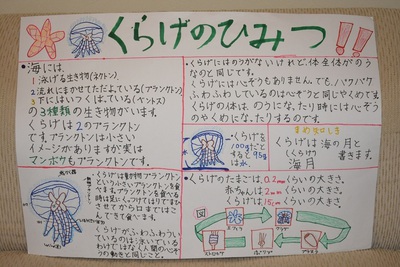 くらげのひみつ!!
・海には、
1 泳げる生き物(ネクトン)
2 流れにまかせてただよっている(プランクトン)
3 下にはいつくばっている(ベントス)
の3種類の生き物がいます。
くらげは2のプランクトン
です。プランクトンは小さい
イメージがありますが実は
マンボウもプランクトンです。
・くらげにはのうがないけれど、体全体がのう
なのと同じです。
くらげには心ぞうもありませんでも、パクパク
ふわふわしているのは心ぞうと同じやくめです。
くらげの体は、のうになったり時には心ぞう
のやくめになったりするのです。
・くらげを
100gだと
すると95gは
水。
まめちしき
くらげは海の月と
書きます。
くらげ
海月
・くらげは動物プランクトン
といって小さいプランクトンを食べ
てます。プランクトンを食べる
くらげがふわふわうい
ているのは泳いでいる
わけではなく人間の心ぞう
の動きと同じこと。
・くらげのたまごは、0.2mmくらいの大きさ。
赤ちゃんは2mmくらいの大きさ。
くらげは15cmくらいの大きさ。
図